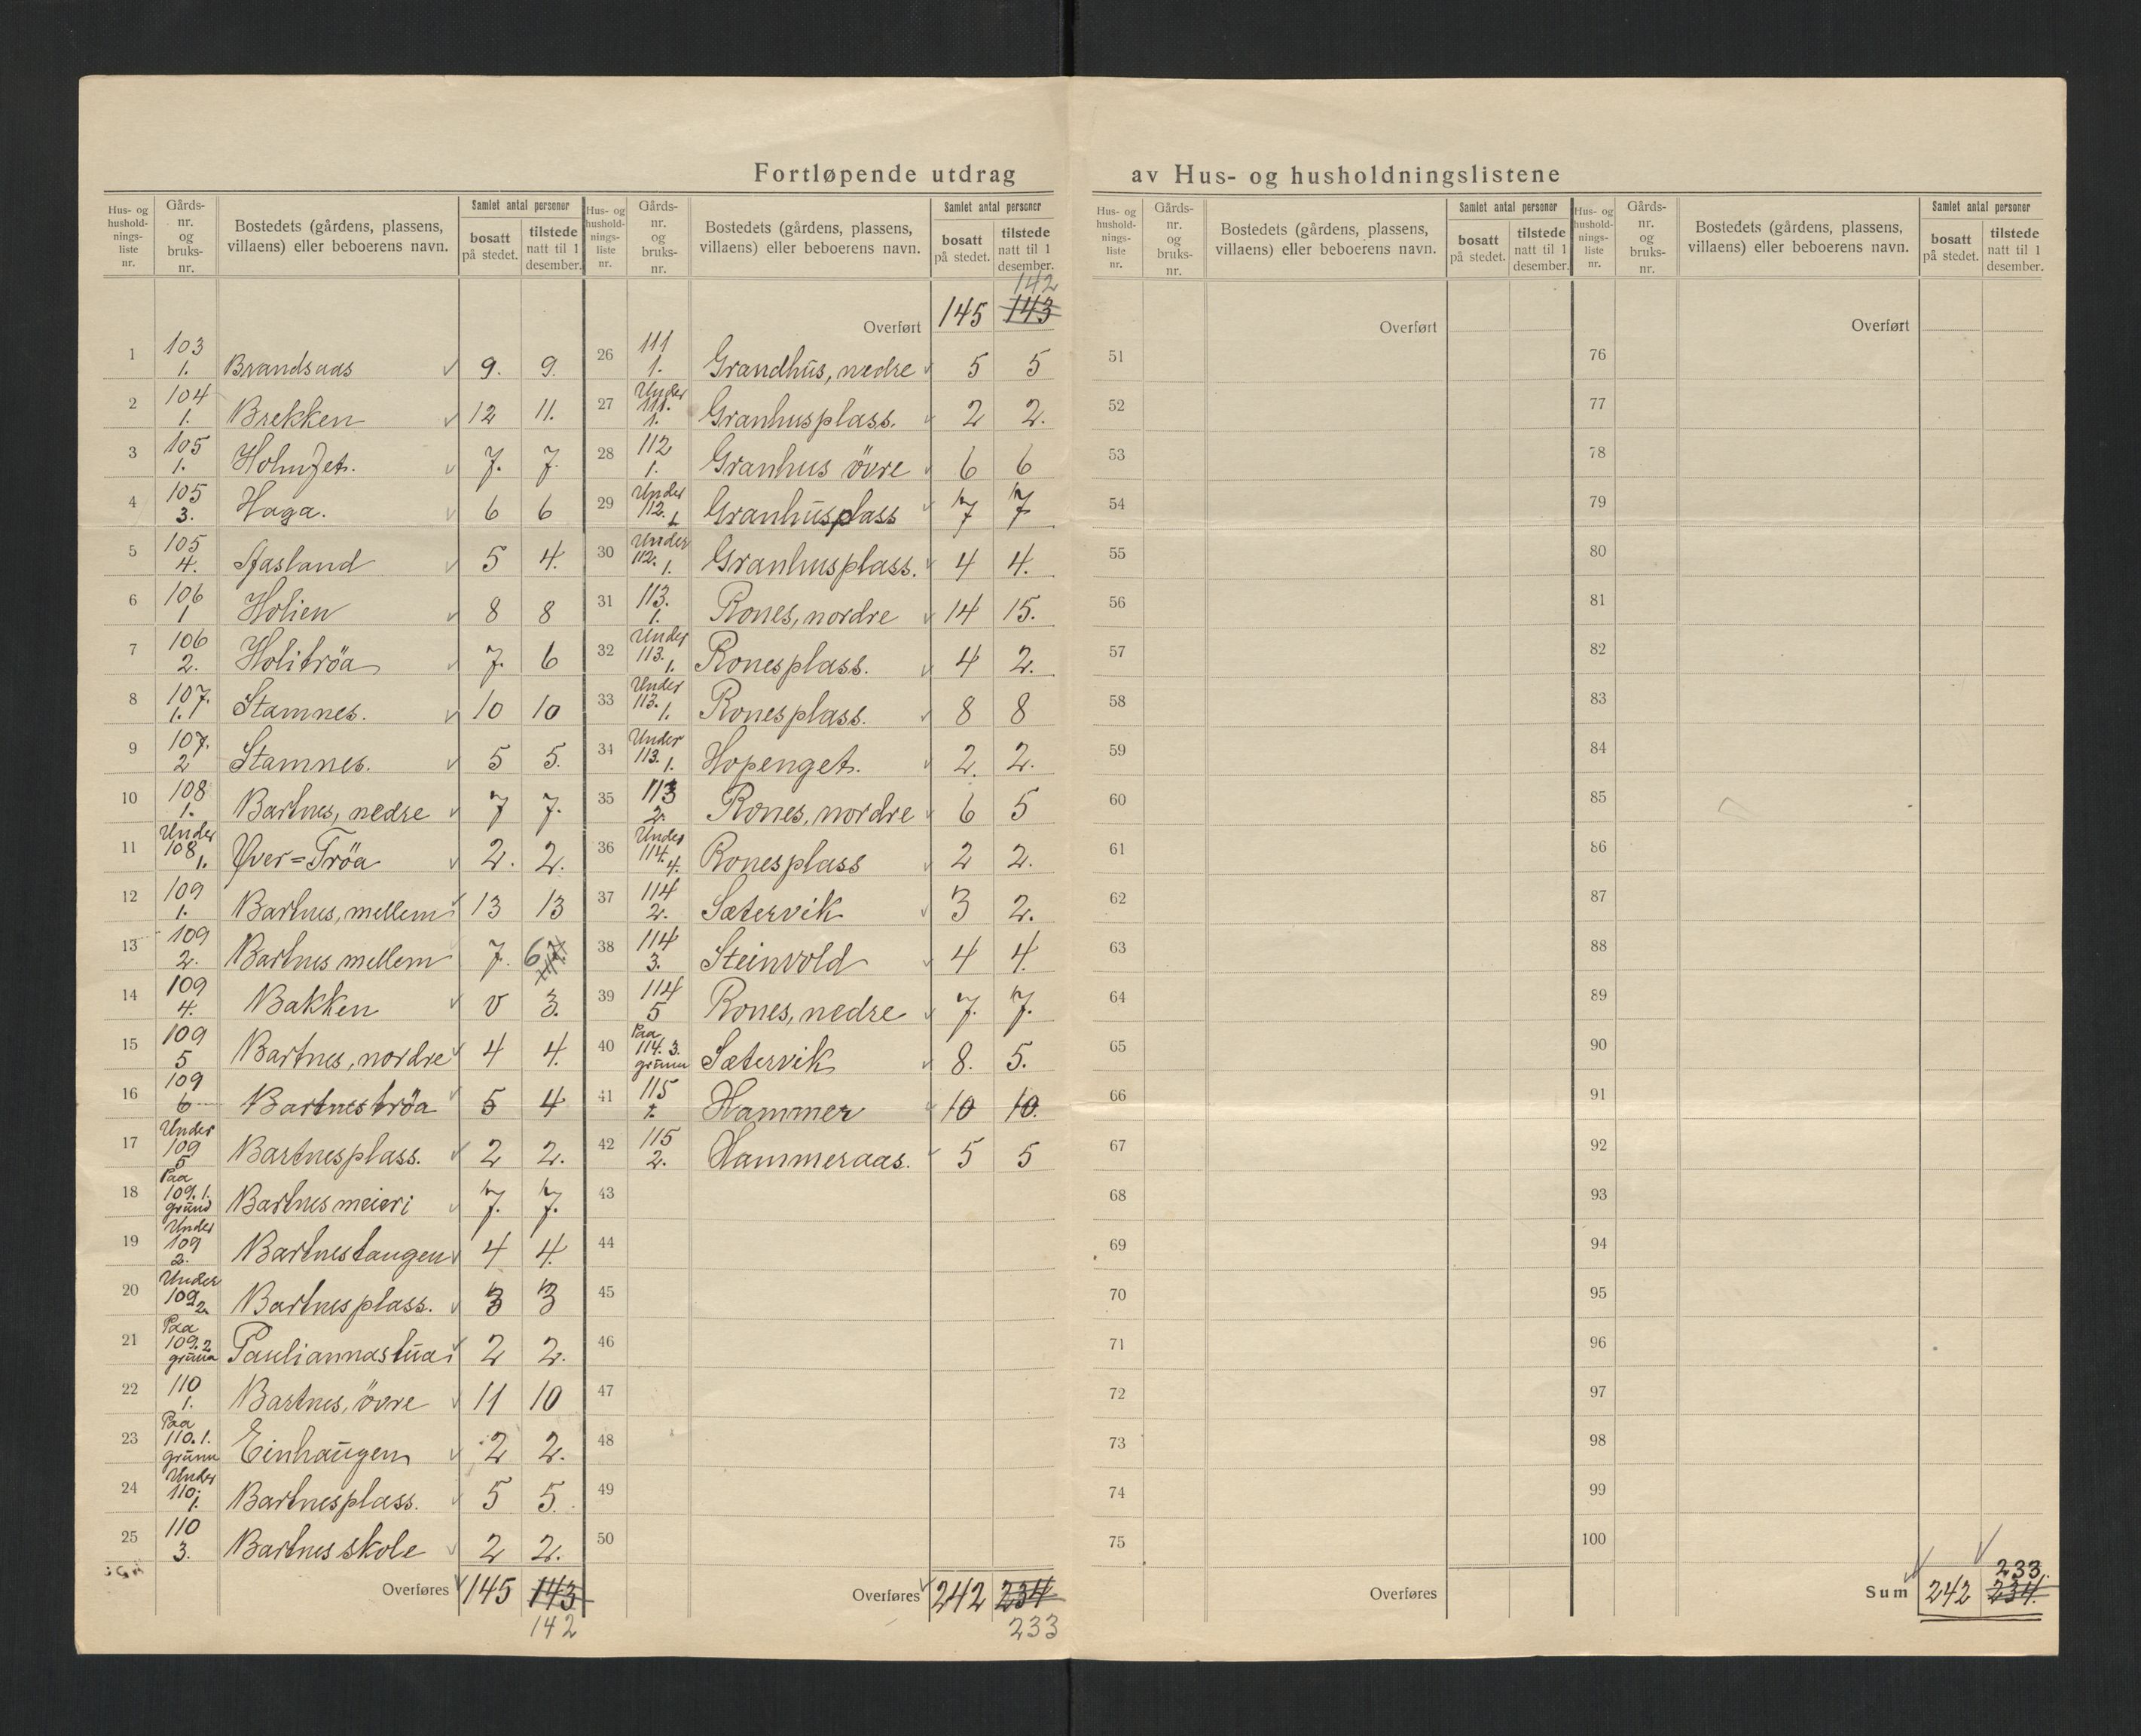 Fortløpende utdrag av Hus- og husholdningslistene
Hus- og hushold-nings-liste nr. Gårds-nr. og bruks-nr. Bostedets (gårdens, plassens, villaens) eller beboerens navn. Samlet antal personer bosatt på stedet. tilstede natt til 1 desember.
1 103 1. Brandsaas 9. 9.
2 104 1. Brekken 12 11.
3 105 1. 7. 7.
4 105 3. Haga. 6 6
5 105 4. 5 4.
6 106 1 Holien 8 8
7 106 2. Holitröa 7. 6
8 107. 1. Stamnes. 10 10
9 107. 2 Stamnes. 5 5.
10 108 1. Bartnes, nedre 7 7.
11 Under 108 1. Øver=Tröa 2. 2.
12 109 1. Bartnes, mellem 13 13
13 109 2. Bartnes mellem 7. 6
14 109 4. Bakken 0 3.
15 109 5 Bartnes, nordre 4 4.
16 109 6 Bartneströa 5 4
17 Under 109 5 Bartnesplass. 2 2.
18 Paa 109. 1. grund Bartnes meieri 7. 7.
19 Under 109 2. Bartnestangen 4 4.
20 Under 109 2. Bartnesplass. 3 3
21 Paa 109. 2 grunn Pauliannastua 2 2.
22 110 1. Bartnes, övre 11 10
23 Paa 110. 1. grunn Einhaugen 2 2.
24 Under 110. 1. Bartnesplass. 5 5.
25 110 3. Bartnes skole 2 2.
Overføres 145 143
142
Hus- og hushold-nings-liste nr. Gårds-nr. og bruks-nr. Bostedets (gårdens, plassens, villaens) eller beboerens navn. Samlet antal personer bosatt på stedet. tilstede natt til 1 desember.
142
Overført 145 143
26 111 1. Grandhus, nedre 5 5
27 Under 111. 1. Granhusplass. 2 2.
28 112 1. Granhus övre 6 6
29 Under 112. 1 Granhusplass 7 7
30 Under 112. 1. Granhusplass. 4 4.
31 113. 1. Rones, nordre 14 15.
32 Under 113. 1. Ronesplass. 4 2.
33 Under 113. 1. Ronesplass. 8 8
34 Under 113. 1. Hopenget. 2. 2.
35 113 2. Rones, nordre 6 5
36 Under 114. 4. Ronesplass 2 2.
37 114 2. Sætervik 3 2.
38 114 3. Steinvold 4 4.
39 114 5 Rones, nedre 7. 7.
40 Paa 114. 3. grunn Sætervik 8. 5.
41 115 1. Hammer 10 10.
42 115 2. Hammeraas. 5 5
43
44
45
46
47
48
49
50
Overføres 242 234
233
Hus- og hushold-nings-liste nr. Gårds-nr. og bruks-nr. Bostedets (gårdens, plassens, villaens) eller beboerens navn. Samlet antal personer bosatt på stedet. tilstede natt til 1 desember.
Overført
51
52
53
54
55
56
57
58
59
60
61
62
63
64
65
66
67
68
69
70
71
72
73
74
75
Overføres
Hus- og hushold-nings-liste nr. Gårds-nr. og bruks-nr. Bostedets (gårdens, plassens, villaens) eller beboerens navn. Samlet antal personer bosatt på stedet. tilstede natt til 1 desember.
Overført
76
77
78
79
80
81
82
83
84
85
86
87
88
89
90
91
92
93
94
95
96
97
98
99
100
233.
Sum 242 234.